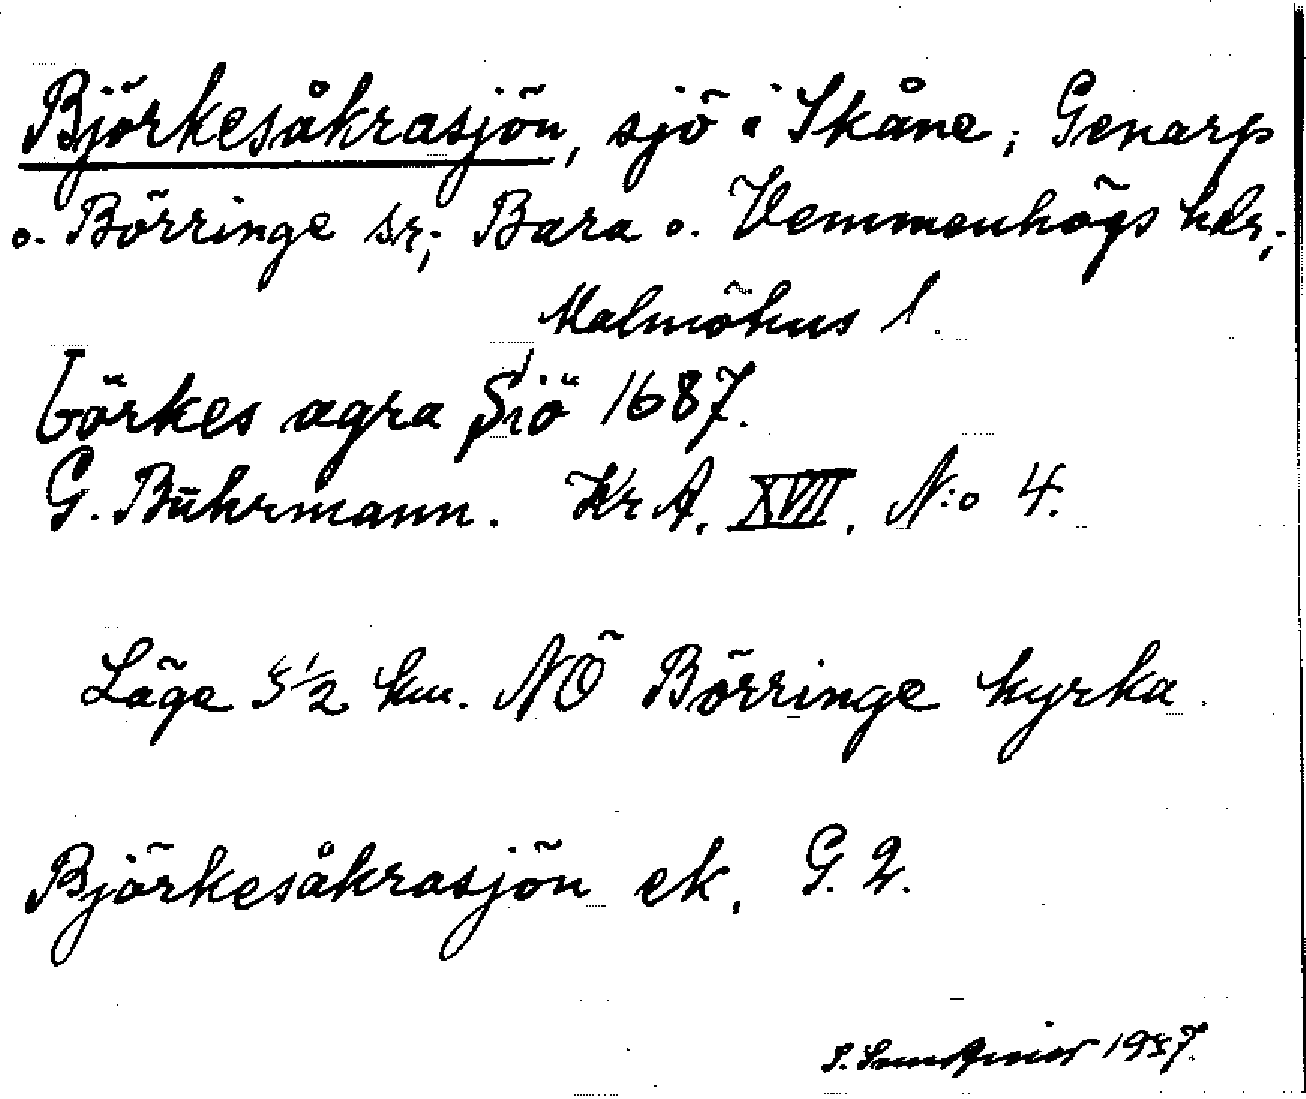 Björkesåkrasjön, sjö i Skåne; Genarp
o. Börringe sr; Bara o. Vemmenhögs hdr;
Malmöhus l.
börkes agra Siö 1687.
G. Bührmann. Kr A. XVII. N:o 4.
Läge 5 1/2 km. NÖ Börringe kyrka.
Björkesåkrasjön ek. G. 2.
1957